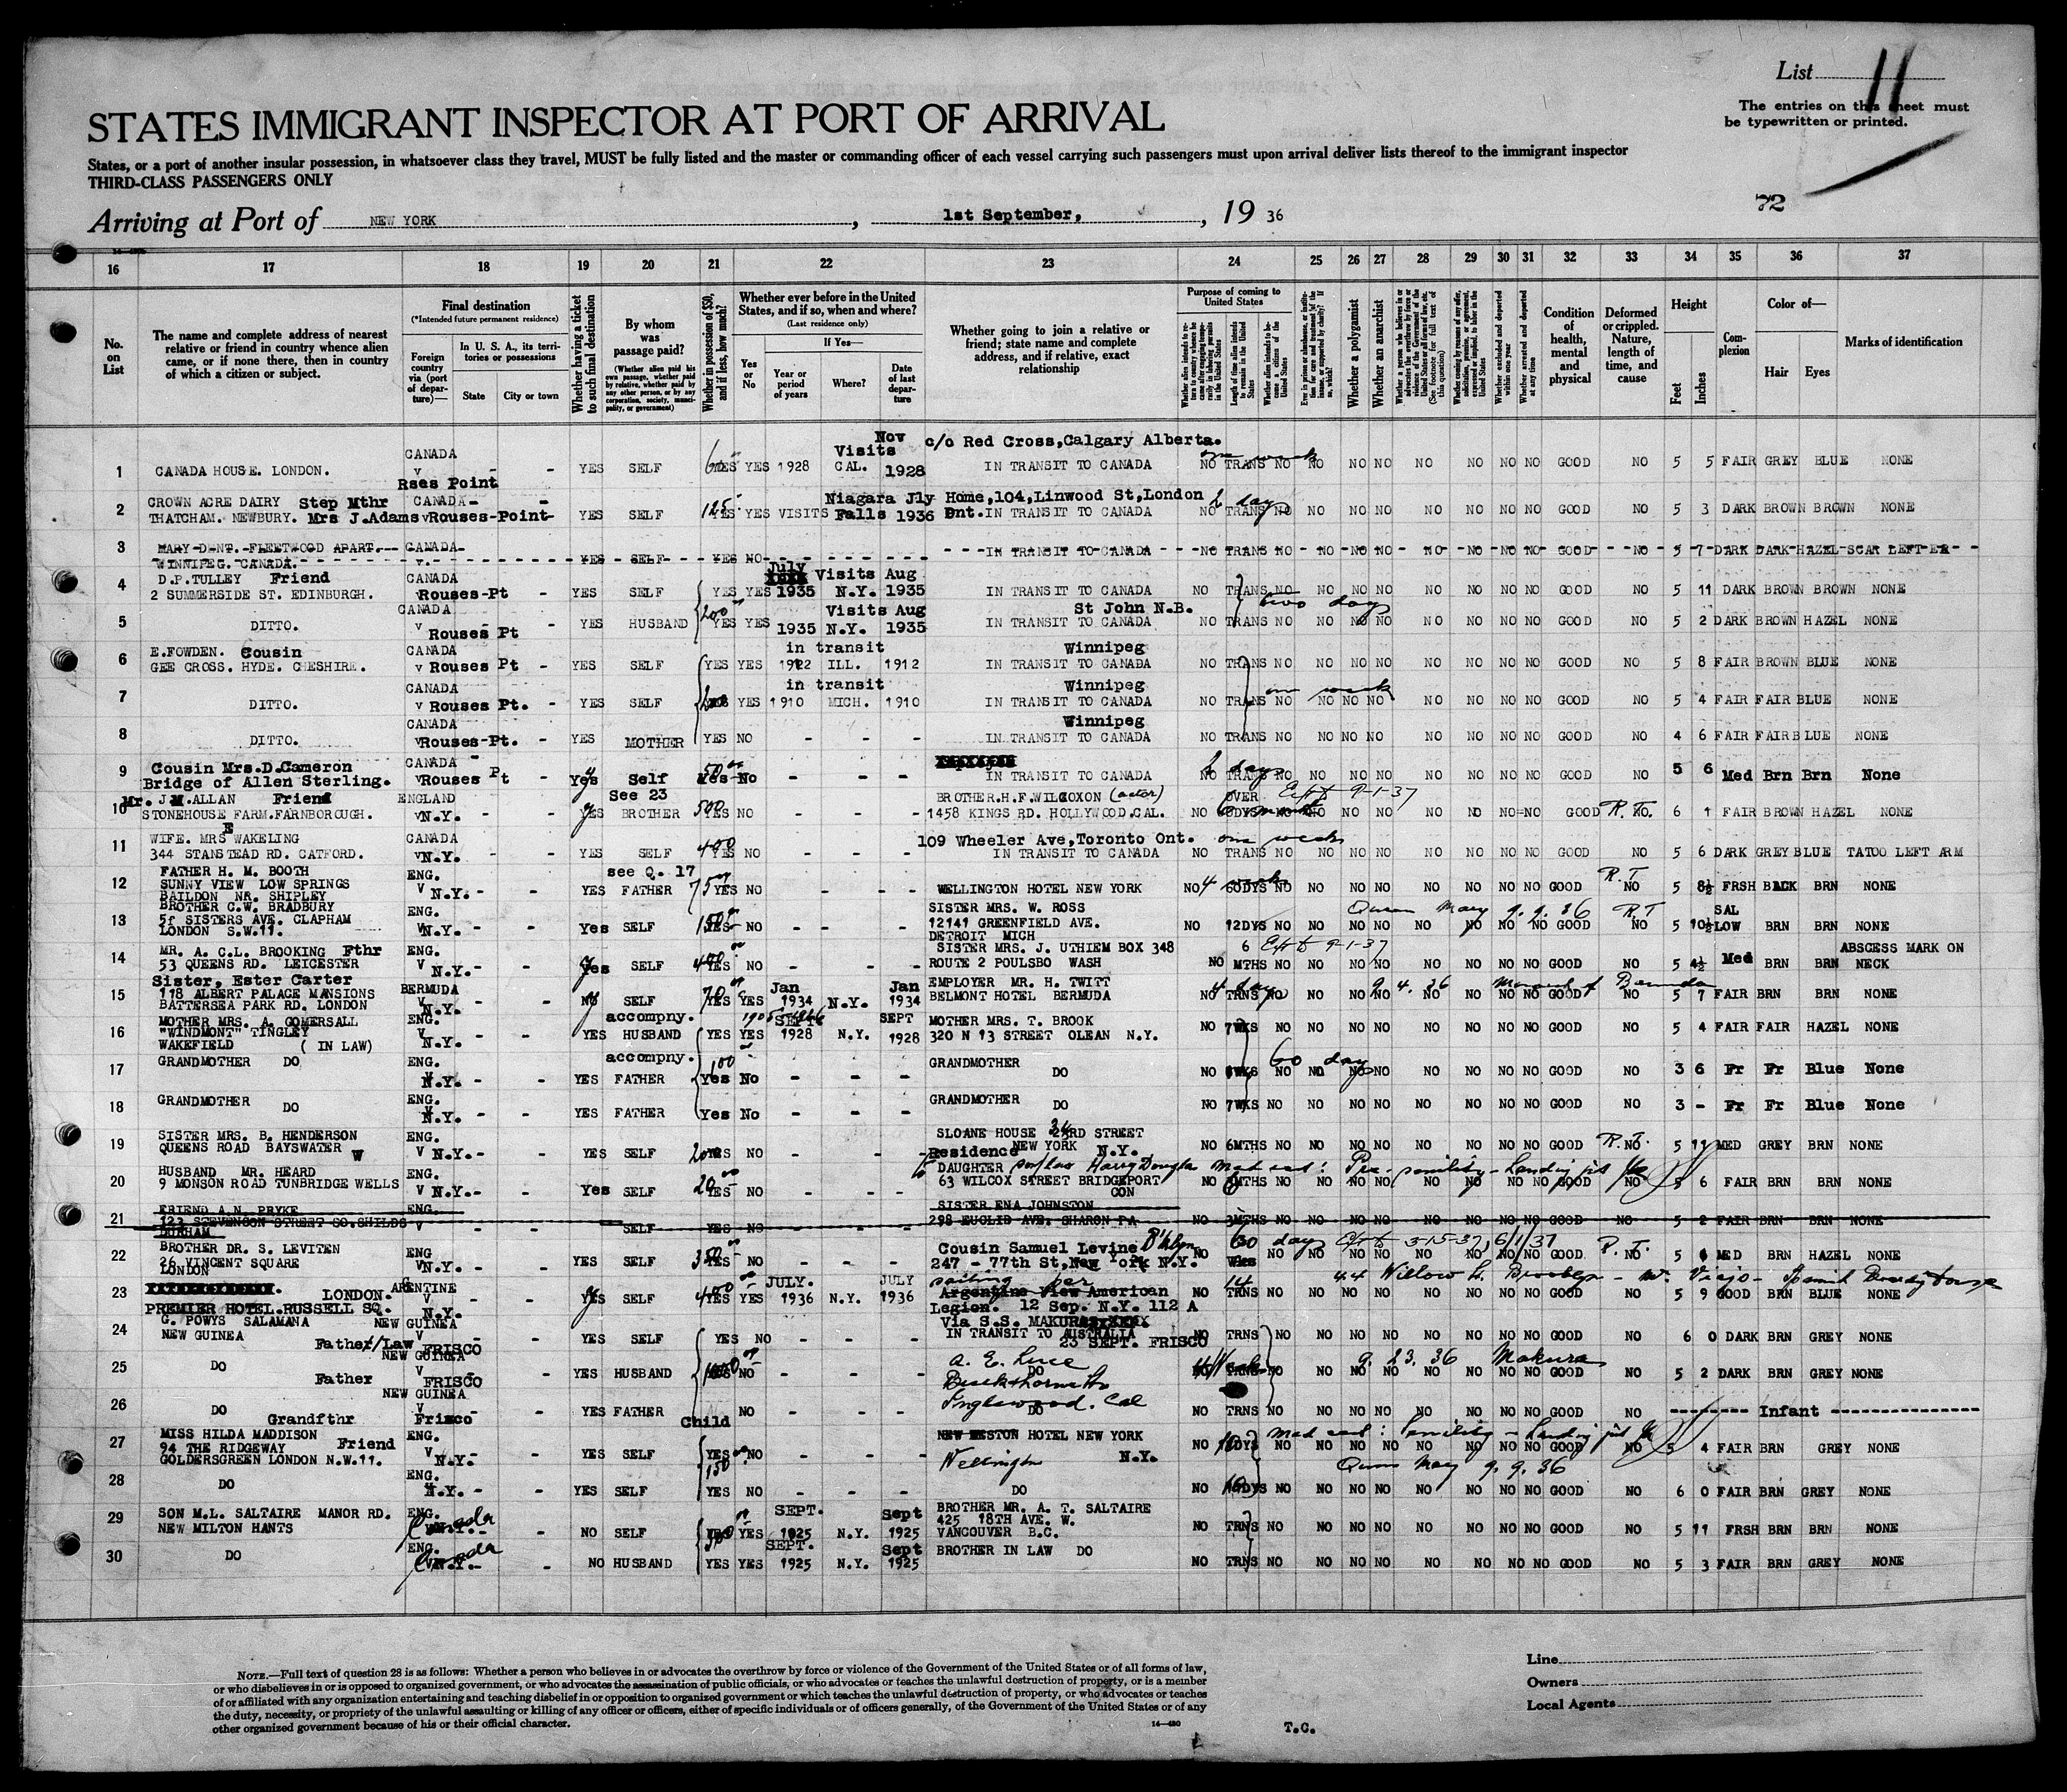 List 11
The entries on this sheet must
be typewritten or printed.
STATES IMMIGRANT INSPECTOR AT PORT OF ARRIVAL
States, or a port of another insular possession, in whatsoever class they travel, MUST be fully listed and the master or commanding officer of each vessel carrying such passengers must upon arrival deliver lists thereof to the immigrant inspector
THIRD-CLASS PASSENGERS ONLY
72
Arriving at Port of NEW YORK, 1st September, 19 36
16 17 18 19 20 21 22 23 24 25 26 27 28 29 30 31 32 33 34 35 36 37
No. on List
The name and complete address of nearest relative or friend in country whence alien came, or if none there, then in country of which a citizen or subject.
Final destination
(*Intended future permanent residence)
Foreign country via (port of departure)—
In U. S. A., its territories or possessions
State
City or town
Whether having a ticket to such final destination
By whom was passage paid?
(Whether alien paid his own passage, whether paid by relative, whether paid by any other person, or by any corporation, society, municipality, or government)
Whether in possession of $50, and if less, how much?
Whether ever before in the United States, and if so, when and where?
(Last residence only)
Yes or No
If Yes—
Year or period of years
Where?
Date of last departure
Whether going to join a relative or friend; state name and complete address, and if relative, exact relationship
Purpose of coming to United States
Length of time alien intends to remain in the United States
Whether alien intends to become a citizen of the United States
Whether a polygamist
Whether an anarchist
Whether excluded and deported within one year
Whether arrested and deported at any time
Condition of health, mental and physical
Deformed or crippled. Nature, length of time, and cause
Height
Feet
Inches
Complexion
Color of—
Hair
Eyes
Marks of identification
CANADA Nov c/o Red Cross,Calgary Alberta.
Visits one week
1 CANADA HOUSE. LONDON. v - - YES SELF YES YES 1928 CAL. 1928 IN TRANSIT TO CANADA NO TRANS NO NO NO NO NO NO NO NO GOOD NO 5 5 FAIR GREY BLUE NONE
Rses Point
CROWN ACRE DAIRY Step Mthr CANADA- - Niagara Jly Home,104,Linwood St,London 2 days
2 THATCHAM. NEWBURY. Mrs J.Adams vRouses-Point- YES SELF YES YES VISITS Falls 1936 Ont. IN TRANSIT TO CANADA NO TRANS NO NO NO NO NO NO NO NO GOOD NO 5 3 DARK BROWN BROWN NONE
3 MARY DENT. FLEETWOOD APART. CANADA YES SELF YES NO IN TRANSIT TO CANADA NO TRANS NO NO NO NO NO NO NO NO GOOD NO 5 7 DARK DARK HAZEL SCAR LEFT
WINNIPEG. CANADA. v.
D.P.TULLEY Friend CANADA July Visits Aug
4 2 SUMMERSIDE ST. EDINBURGH. Rouses-Pt - YES SELF YES YES 1935 N.Y. 1935 IN TRANSIT TO CANADA NO TRANS NO NO NO NO NO NO NO NO GOOD NO 5 11 DARK BROWN BROWN NONE
CANADA Visits Aug St John N.B. two days
5 DITTO. v Rouses Pt - YES HUSBAND 200 YES YES 1935 N.Y. 1935 IN TRANSIT TO CANADA NO TRANS NO NO NO NO NO NO NO NO GOOD NO 5 2 DARK BROWN HAZEL NONE
E.FOWDEN. Cousin CANADA in transit Winnipeg
6 GEE CROSS. HYDE. CHESHIRE. v Rouses Pt - YES SELF YES YES 1912 ILL. 1912 IN TRANSIT TO CANADA NO TRANS NO NO NO NO NO NO NO NO GOOD NO 5 8 FAIR BROWN BLUE NONE
CANADA in transit Winnipeg one week
7 DITTO. v Rouses Pt. - YES SELF YES 1910 MICH. 1910 IN TRANSIT TO CANADA NO TRANS NO NO NO NO NO NO NO NO GOOD NO 5 4 FAIR FAIR BLUE NONE
CANADA Winnipeg
8 DITTO. vRouses-Pt. - YES MOTHER YES NO - - - IN TRANSIT TO CANADA NO TRANS NO NO NO NO NO NO NO NO GOOD NO 4 6 FAIR FAIR BLUE NONE
Cousin Mrs.D.Cameron CANADA 2 days
9 Bridge of Allen Sterling. vRouses Pt - Yes Self 50 Yes No - - - IN TRANSIT TO CANADA NO TRANS NO NO NO NO NO NO NO NO GOOD NO 5 6 Med Brn Brn None
Mr. J.M.ALLAN Friend ENGLAND See 23 BROTHER.H.F.WILCOXON (actor) OVER 9-1-37
10 STONEHOUSE FARM.FARNBOROUGH. vN.Y. - - YES BROTHER 500 YES NO - - - 1458 KINGS RD. HOLLYWOOD.CAL. NO 60DYS NO NO NO NO NO NO NO NO GOOD R.T. NO. 6 1 FAIR BROWN HAZEL NONE
WIFE. MRS E WAKELING CANADA 109 Wheeler Ave,Toronto Ont. one week
11 344 STANSTEAD RD. CATFORD. vN.Y. YES SELF 400 YES NO - - - IN TRANSIT TO CANADA NO TRANS NO NO NO NO NO NO NO NO GOOD NO 5 6 DARK GREY BLUE TATOO LEFT ARM
FATHER H. M. BOOTH ENG. see Q. 17 R.T
12 SUNNY VIEW LOW SPRINGS v N.Y. - - YES FATHER 75 YES NO - - - WELLINGTON HOTEL NEW YORK NO 4 weeks 60DYS NO NO NO NO NO NO NO NO GOOD NO 5 8½ FRSH BACK BRN NONE
BAILDON NR. SHIPLEY
BROTHER C.W. BRADBURY ENG. SISTER MRS. W. ROSS Queen Mary 9.9.36 R.T SAL
13 5f SISTERS AVE. CLAPHAM vN.Y. - - Yes SELF 150 YES NO - - - 12141 GREENFIELD AVE. NO 12DYS NO NO NO NO NO NO NO NO GOOD NO 5 10½ LOW BRN BRN NONE
LONDON S.W.11. DETROIT MICH
MR. A. C.L. BROOKING Fthr ENG. SISTER MRS. J. UTHIEM BOX 348 6 9-1-37 ABSCESS MARK ON
14 53 QUEENS RD. LEICESTER v N.Y. - - Yes SELF 400 YES NO - - - ROUTE 2 POULSBO WASH NO MTHS NO NO NO NO NO NO NO NO GOOD NO 5 4½ Med BRN BRN NECK
Sister, Ester Carter BERMUDA Jan Jan EMPLOYER MR. H. TWITT 4 days 9 4. 36 Monarch of Bermuda
15 118 ALBERT PALACE MANSIONS v N.Y. - - SELF 70 YES YES 1934 N.Y. 1934 BELMONT HOTEL BERMUDA NO TRNS NO NO NO NO NO NO NO NO GOOD NO 5 7 FAIR BRN BRN NONE
BATTERSEA PARK RD. LONDON
MOTHER MRS. A. GOMERSALL ENG. accompny. SEPT SEPT MOTHER MRS. T. BROOK
16 "WINDMONT" TINGLEY v N.Y. - - YES HUSBAND YES YES 1928 N.Y. 1928 320 N 13 STREET OLEAN N.Y. NO 7WKS NO NO NO NO NO NO NO NO GOOD NO 5 4 FAIR FAIR HAZEL NONE
WAKEFIELD ( IN LAW)
GRANDMOTHER DO ENG. accompny. GRANDMOTHER 60 days
17 N.Y. - - YES FATHER 100 Yes No - - - DO NO WKS NO NO NO NO NO NO NO NO GOOD NO 3 6 Fr Fr Blue None
GRANDMOTHER ENG. GRANDMOTHER
18 DO N.Y. - - YES FATHER Yes No - - - DO NO 7WKS NO NO NO NO NO NO NO NO GOOD NO 3 - Fr Fr Blue None
SISTER MRS. B. HENDERSON ENG. SLOANE HOUSE 34 STREET R.T.
19 QUEENS ROAD BAYSWATER W v N.Y. - - YES SELF 200 YES NO - - - NEW YORK N.Y. NO 6MTHS NO NO NO NO NO NO NO NO GOOD NO 5 11 MED GREY BRN NONE
Residence
HUSBAND MR. HEARD ENG. DAUGHTER son/law Harry Douglas Med cert: Pre-senility - Landing
20 9 MONSON ROAD TUNBRIDGE WELLS v N.Y.- - Yes SELF 20 YES NO - - - 63 WILCOX STREET BRIDGEPORT CON NO MTHS NO NO NO NO NO NO NO NO GOOD NO 5 6 FAIR BRN BRN NONE
FRIEND A.N. PRYKE ENG. SISTER ENA JOHNSTON
21 123 STEVENSON STREET SO.SHILDS v SELF YES NO 298 EUCLID AVE. SHARON PA NO 3MTHS NO NO NO NO NO NO NO NO GOOD NO 5 2 FAIR BRN BRN NONE
DURHAM
BROTHER DR. S. LEVITEN ENG Cousin Samuel Levine B'klyn 60 days 3-15-37, 6/1/37 R.T.
22 26 VINCENT SQUARE vN.Y. - - YES SELF 350 YES NO - - - 247 - 77th St,New York N.Y. NO Wks NO NO NO NO NO NO NO NO GOOD 5 MED BRN HAZEL NONE
LONDON
ARGENTINE JULY. JULY sailing per 14 44 Willow St. Brooklyn - Spanish Boarding House
23 LONDON. v - - SELF 400 YES YES 1936 N.Y. 1936 Argentine View American NO TRNS NO NO NO NO NO NO NO NO GOOD NO 5 9 GOOD BRN BLUE NONE
PREMIER HOTEL.RUSSELL SQ. N.Y. Legion. 12 Sep. N.Y. 112 A
G. POWYS SALAMANA NEW GUINEA Via S.S. MAKURA
24 NEW GUINEA v - - YES SELF YES NO - - - IN TRANSIT TO AUSTRALIA NO TRNS NO NO NO NO NO NO NO NO GOOD NO 6 0 DARK BRN GREY NONE
Father/Law FRISCO 23 SEPT. FRISCO
NEW GUINEA A. E. Luce 9. 23. 36 Makura
25 DO v - - YES HUSBAND YES NO - - - DO TRNS NO NO NO NO NO NO NO NO GOOD NO 5 2 DARK BRN GREY NONE
Father FRISCO
NEW GUINEA Inglewood. Cal
26 DO v - - YES FATHER NO - - - DO NO TRNS NO NO NO NO NO NO NO NO GOOD NO Infant
Grandfthr Frisco Child
MISS HILDA MADDISON ENG. NEW WESTON HOTEL NEW YORK Med cert: Senility - Landing
27 94 THE RIDGEWAY Friend v - - YES SELF YES NO - - - Wellington N.Y. NO DYS NO NO NO NO NO NO NO NO GOOD NO 5 4 FAIR BRN GREY NONE
GOLDERSGREEN LONDON N.W.11. N.Y. 150 Queen Mary 9. 9. 36
28 DO ENG. N.Y. - - YES SELF YES NO - - - DO NO DYS NO NO NO NO NO NO NO NO GOOD NO 6 0 FAIR BRN GREY NONE
SON M.L. SALTAIRE MANOR RD. ENG. SEPT. Sept BROTHER MR. A. T. SALTAIRE
29 NEW MILTON HANTS Canada N.Y.- - NO SELF YES YES 1925 N.Y. 1925 425 18TH AVE. W. VANCOUVER B.C. NO TRNS NO NO NO NO NO NO NO NO GOOD NO 5 11 FRSH BRN BRN NONE
ENG. SEPT. Sept
30 DO Canada vN.Y.- - NO HUSBAND YES YES 1925 N.Y. 1925 BROTHER IN LAW DO NO TRNS NO NO NO NO NO NO NO NO GOOD NO 5 3 FAIR BRN GREY NONE
NOTE.—Full text of question 28 is as follows: Whether a person who believes in or advocates the overthrow by force or violence of the Government of the United States or of all forms of law,
or who disbelieves in or is opposed to organized government, or who advocates the assassination of public officials, or who advocates or teaches the unlawful destruction of property, or is a member
of or affiliated with any organization entertaining and teaching disbelief in or opposition to organized government or which teaches the unlawful destruction of property, or who advocates or teaches
the duty, necessity, or propriety of the unlawful assaulting or killing of any officer or officers, either of specific individuals or of officers generally, of the Government of the United States or of any
other organized government because of his or their official character.
14—480
T.C.
Line
Owners
Local Agents